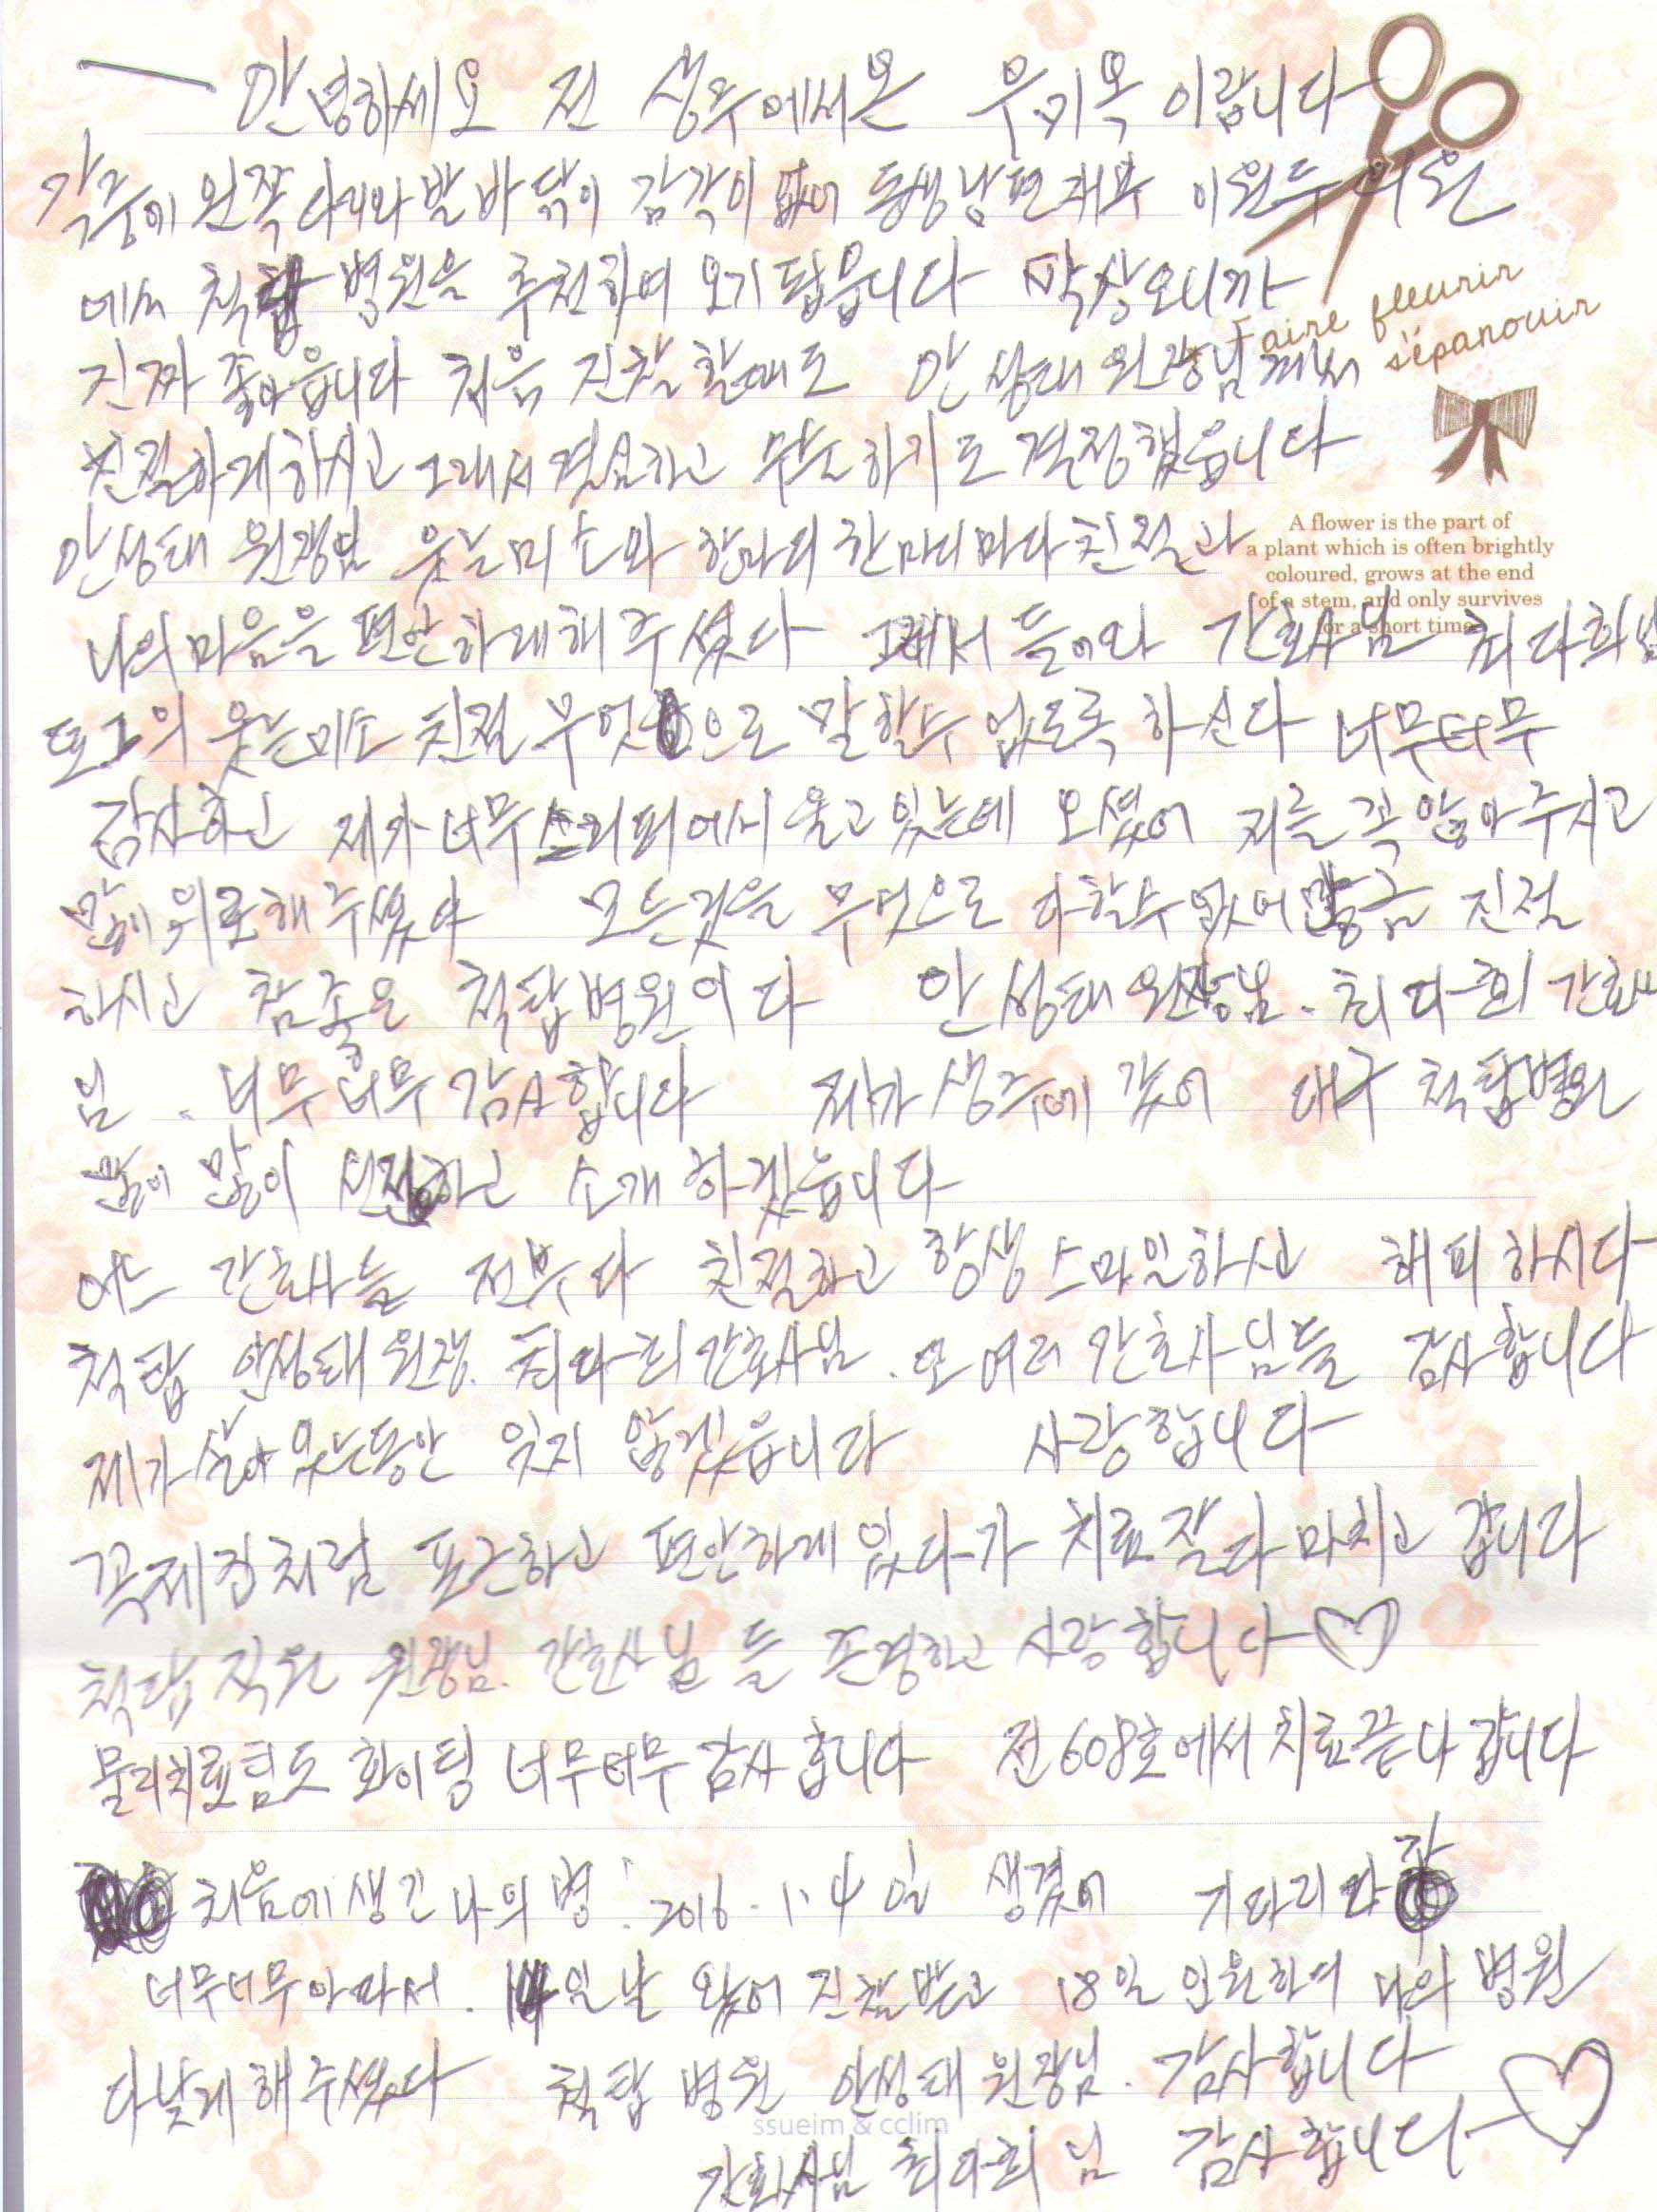 안녕하세요 전 성주에서온 우기옥 이랍니다
각중에 왼쪽다리와 발바닦이 감각이 없어 동생남편 이원두 의원
에서 척탑 병원을 추천하여 오기됍읍니다 막상오니까
Faire fleurir
s'épanouir
진짜 좋아읍니다 처음 진찰할때도 안성태 원장님께서
친절하게하시고 그래서 하고 하기로 결정했읍니다
A flower is the part of
a plant which is often brightly
coloured, grows at the end
of a stem, and only survives
for a short time.
안성태 원장님 웃는미소와 한마디한마디마다 친절과
나의마음을 편안하게해주셨다 그래서 들어와 간호사님 최다희님
또그의 웃는미소 친절 무엇으로 말할수 없도록 하신다 너무너무
감사하고 제가너무 에서 울고있는데 오셨어 저를 꼭 않아주시고
많이 위로해주셨야 모든것을 무엇으로 다할수없어 친절
하시고 참좋은 척탑병원이다 안성태원장님. 최다희 간호사
님. 너무너무 감사합니다 제가 성주에 갔어 대구 척탑병원
많이 많이 선전하고 소개 하겠읍니다
어느 간호사들 전부다 친절하고 항상 스마일하시고 해피하시다
척탑 안성태원장. 최다희간호사님. 모 여러 간호사님들 감사합니다
제가살아있는동안 잊지 않겠읍니다 사랑합니다
꼭제집처럼 포근하고 편안하게있다가 치료잘다마치고 갑니다
척탑 직원 원장님. 간호사님들 존경하고 사랑합니다♡
물리치료팀도 화이팅 너무너무감사합니다 전608호에서치료끝나갑니다
처음에생긴 나의병. 2016.1.4일 생겼어 기다리다가
너무너무아파서. 14일날 왔어 진찰받고 18일 입원하여 나의 병원
다낫게해주셨다 척탑병원 안성태원장님. 감사합니다 ♡
ssueim & cclim
간호사님 최다희님 감사합니다